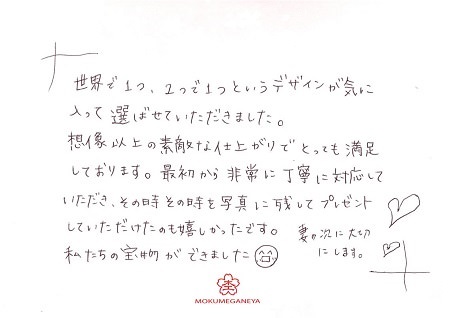 世界で1つ、2つで1つというデザインが気に
入って選ばせていただきました。
想像以上の素敵な仕上がりでとっても満足
しております。最初から非常に丁寧に対応して
いただき、その時その時を写真に残してプレゼント
していただけたのも嬉しかったです。
私たちの宝物ができました
妻の次に大切
にします。
MOKUMEGANEYA